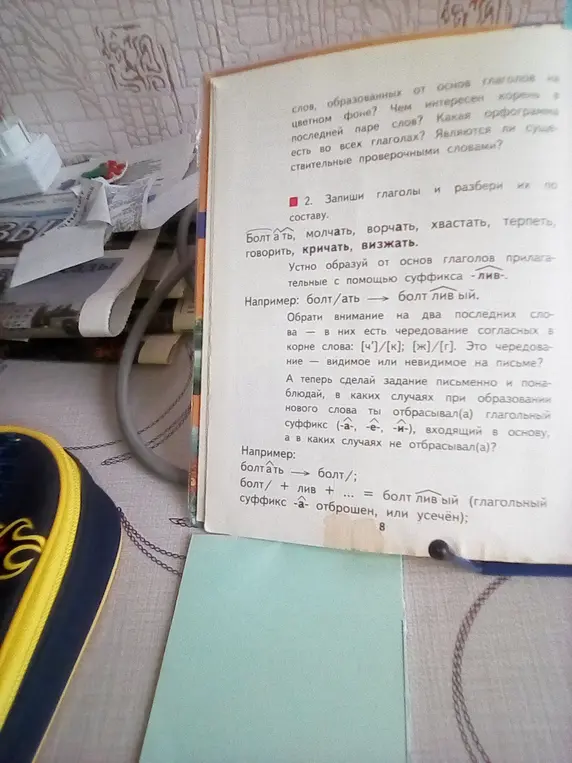 слов, образованных от основ глаголов на
цветном фоне? Чем интересен корень в
последней паре слов? Какая орфограмма
есть во всех глаголах? Являются ли суще-
ствительные проверочными словами?
2. Запиши глаголы и разбери их по
составу.
Болтать, молчать, ворчать, хвастать, терпеть,
говорить, кричать, визжать.
Устно образуй от основ глаголов прилага-
тельные с помощью суффикса -лив-.
Например: болт/ать → болтливый.
Обрати внимание на два последних сло-
ва — в них есть чередование согласных в
корне слова: [ч']/[к]; [ж]/[г]. Это чередова-
ние — видимое или невидимое на письме?
А теперь сделай задание письменно и пона-
блюдай, в каких случаях при образовании
нового слова ты отбрасывал(а) глагольный
суффикс (-а-, -е-, -и-), входящий в основу,
а в каких случаях не отбрасывал(а)?
Например:
болтать → болт/;
болт/ + лив + ... = болтливый (глагольный
суффикс -а- отброшен, или усечён);
8